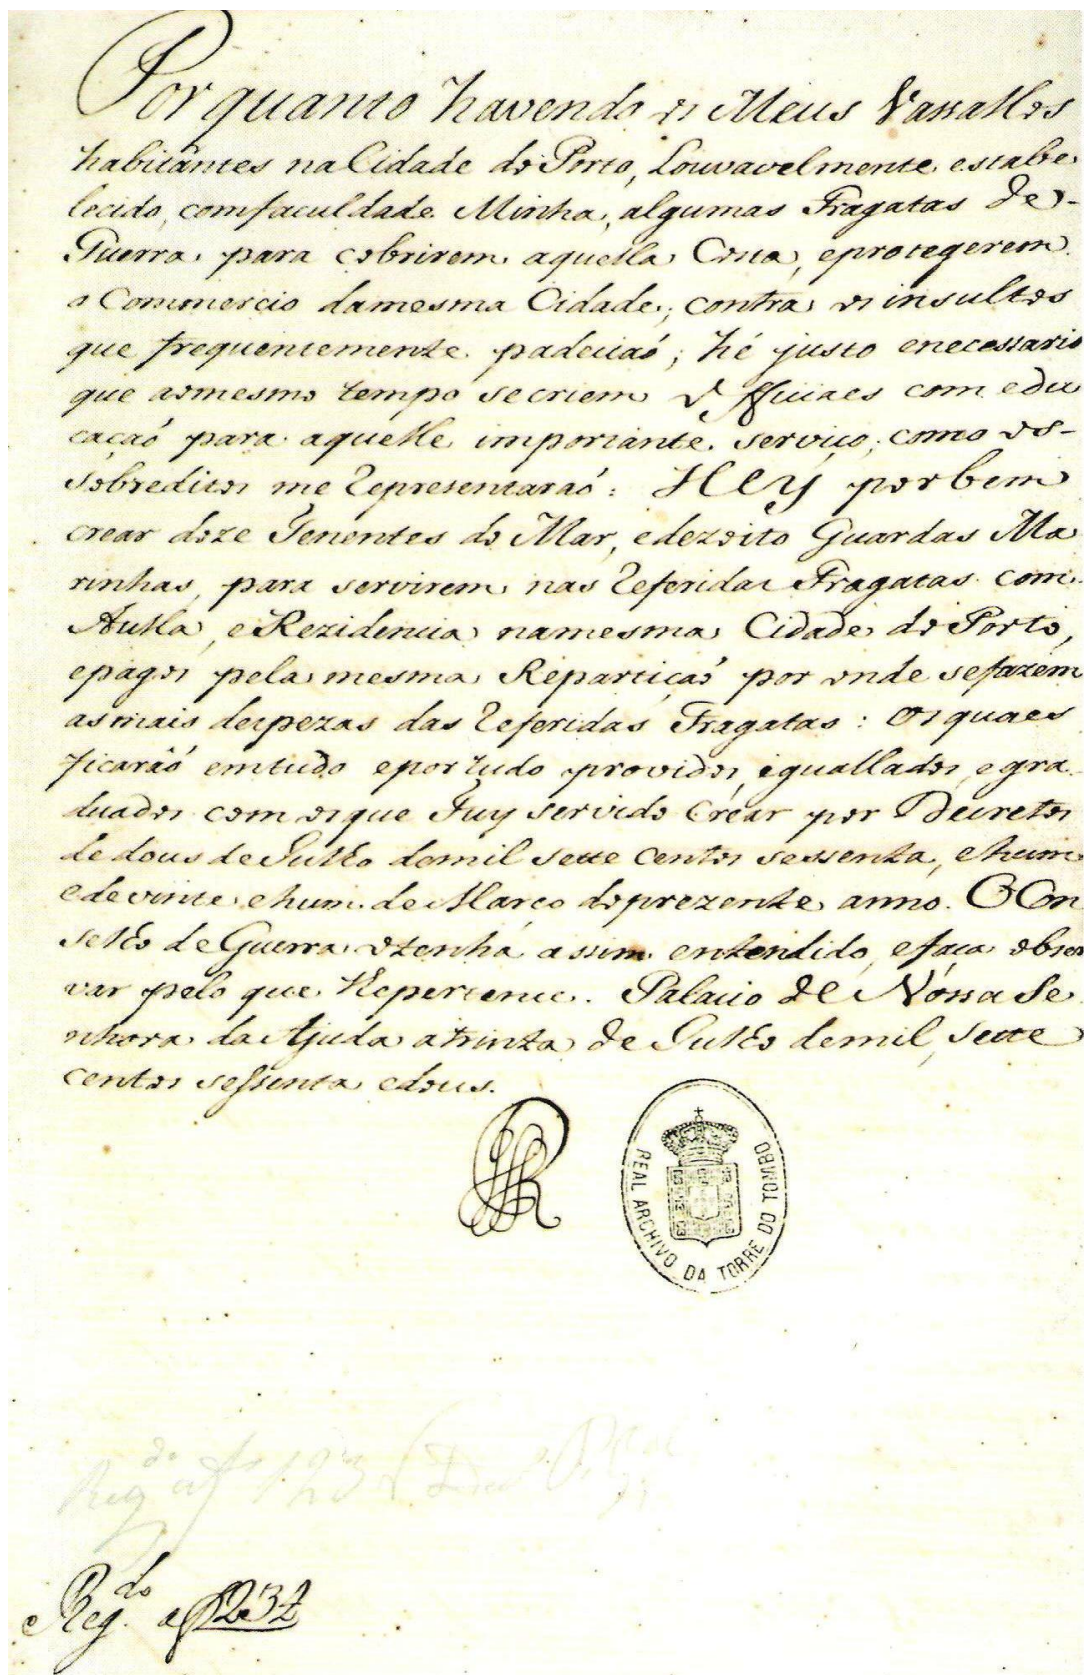 Porquanto havendo os Meus Vassallos
habitântes na Cidade do Porto, Louvavelmente estabe-
lecido, com faculdade Minha, algumas Fragatas de-
Guerra para cobrirem aquella Costa, e protegerem
o Commercio da mesma Cidade, contra os insultos
que frequentemente padeciaõ; hé justo e necessario
que ao mesmo tempo se criem Officiaes com edu
caçaõ para aquelle importante serviço, como os-
sobreditos me representaraõ: Hey por bem
crear doze Tenentes do Mar, e dezoito Guardas Ma
rinhas, para servirem nas referidas Fragatas com
Aulla, e Rezidencia na mesma Cidade do Porto,
e pagos pela mesma Repartiçaõ por onde se fazem
as mais despezas das referidas Fragatas: Os quaes
ficaraõ em tudo e por tudo providos, iguallados, e gra-
duados com os que Fuy servido Crear por Decretos
de dous de Julho de mil sette centos sessenta, e hum
e de vinte e hum de Março do prezente anno. O Con
selho de Guerra o tenha assim entendido, e faça obser
var pelo que lhe pertence. Palacio de Nossa Se
nhora da Ajuda a trinta de Julho de mil, sette
centos sessenta e dous.
REAL ARCHIVO DA TORRE DO TOMBO
Reg.do a f